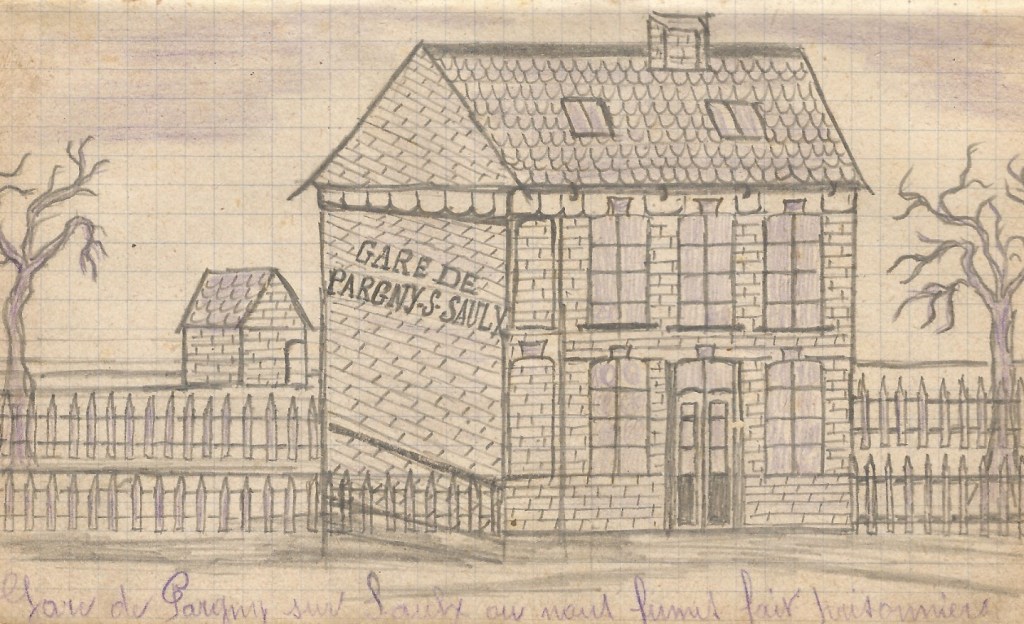 GARE DE
PARGNY-S-SAULX
Gare de Pargny sur Saulx ou nous fumes fait prisonniers